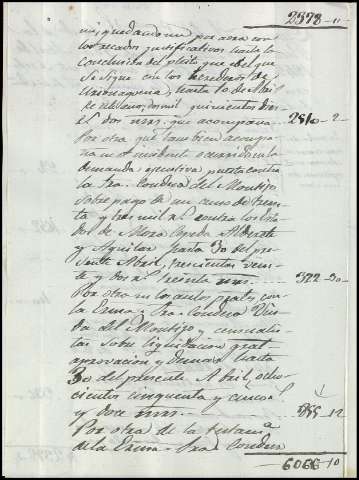 2378-11
mi, quedandome por aora con
los recados justificativos hasta la
conclusion del pleito que del que
se sigue con los herederos de
hasta 10 de Abril
de dos mil quinientos diez
r.s dos mrs. que acompaña 2510-2
Por otra que tambien acompa
ña en el incidente
demanda ejecutiva puesta contra
la Sra. Condesa del Montijo
sobre pago de un censo de trein
ta y tres mil r.s contra los Esta
dos de Mora Cepeda Alderete
y Aguilar hasta 30 del pre
sente Abril, trescientos vein
te y dos r.s treinta mrs. 322-30
Por otra en los autos grales con
la Exma. Sra. Condesa Viu
da del Montijo y censualis
tas sobre liquidacion gral
aprovacion y demas hasta
30 del presente Abril, ocho
cientos cinquenta y cinco r.s
y doce mrs. 855-12
Por otra de la testam.a
de la Exma. Sra. Condesa
6066-10